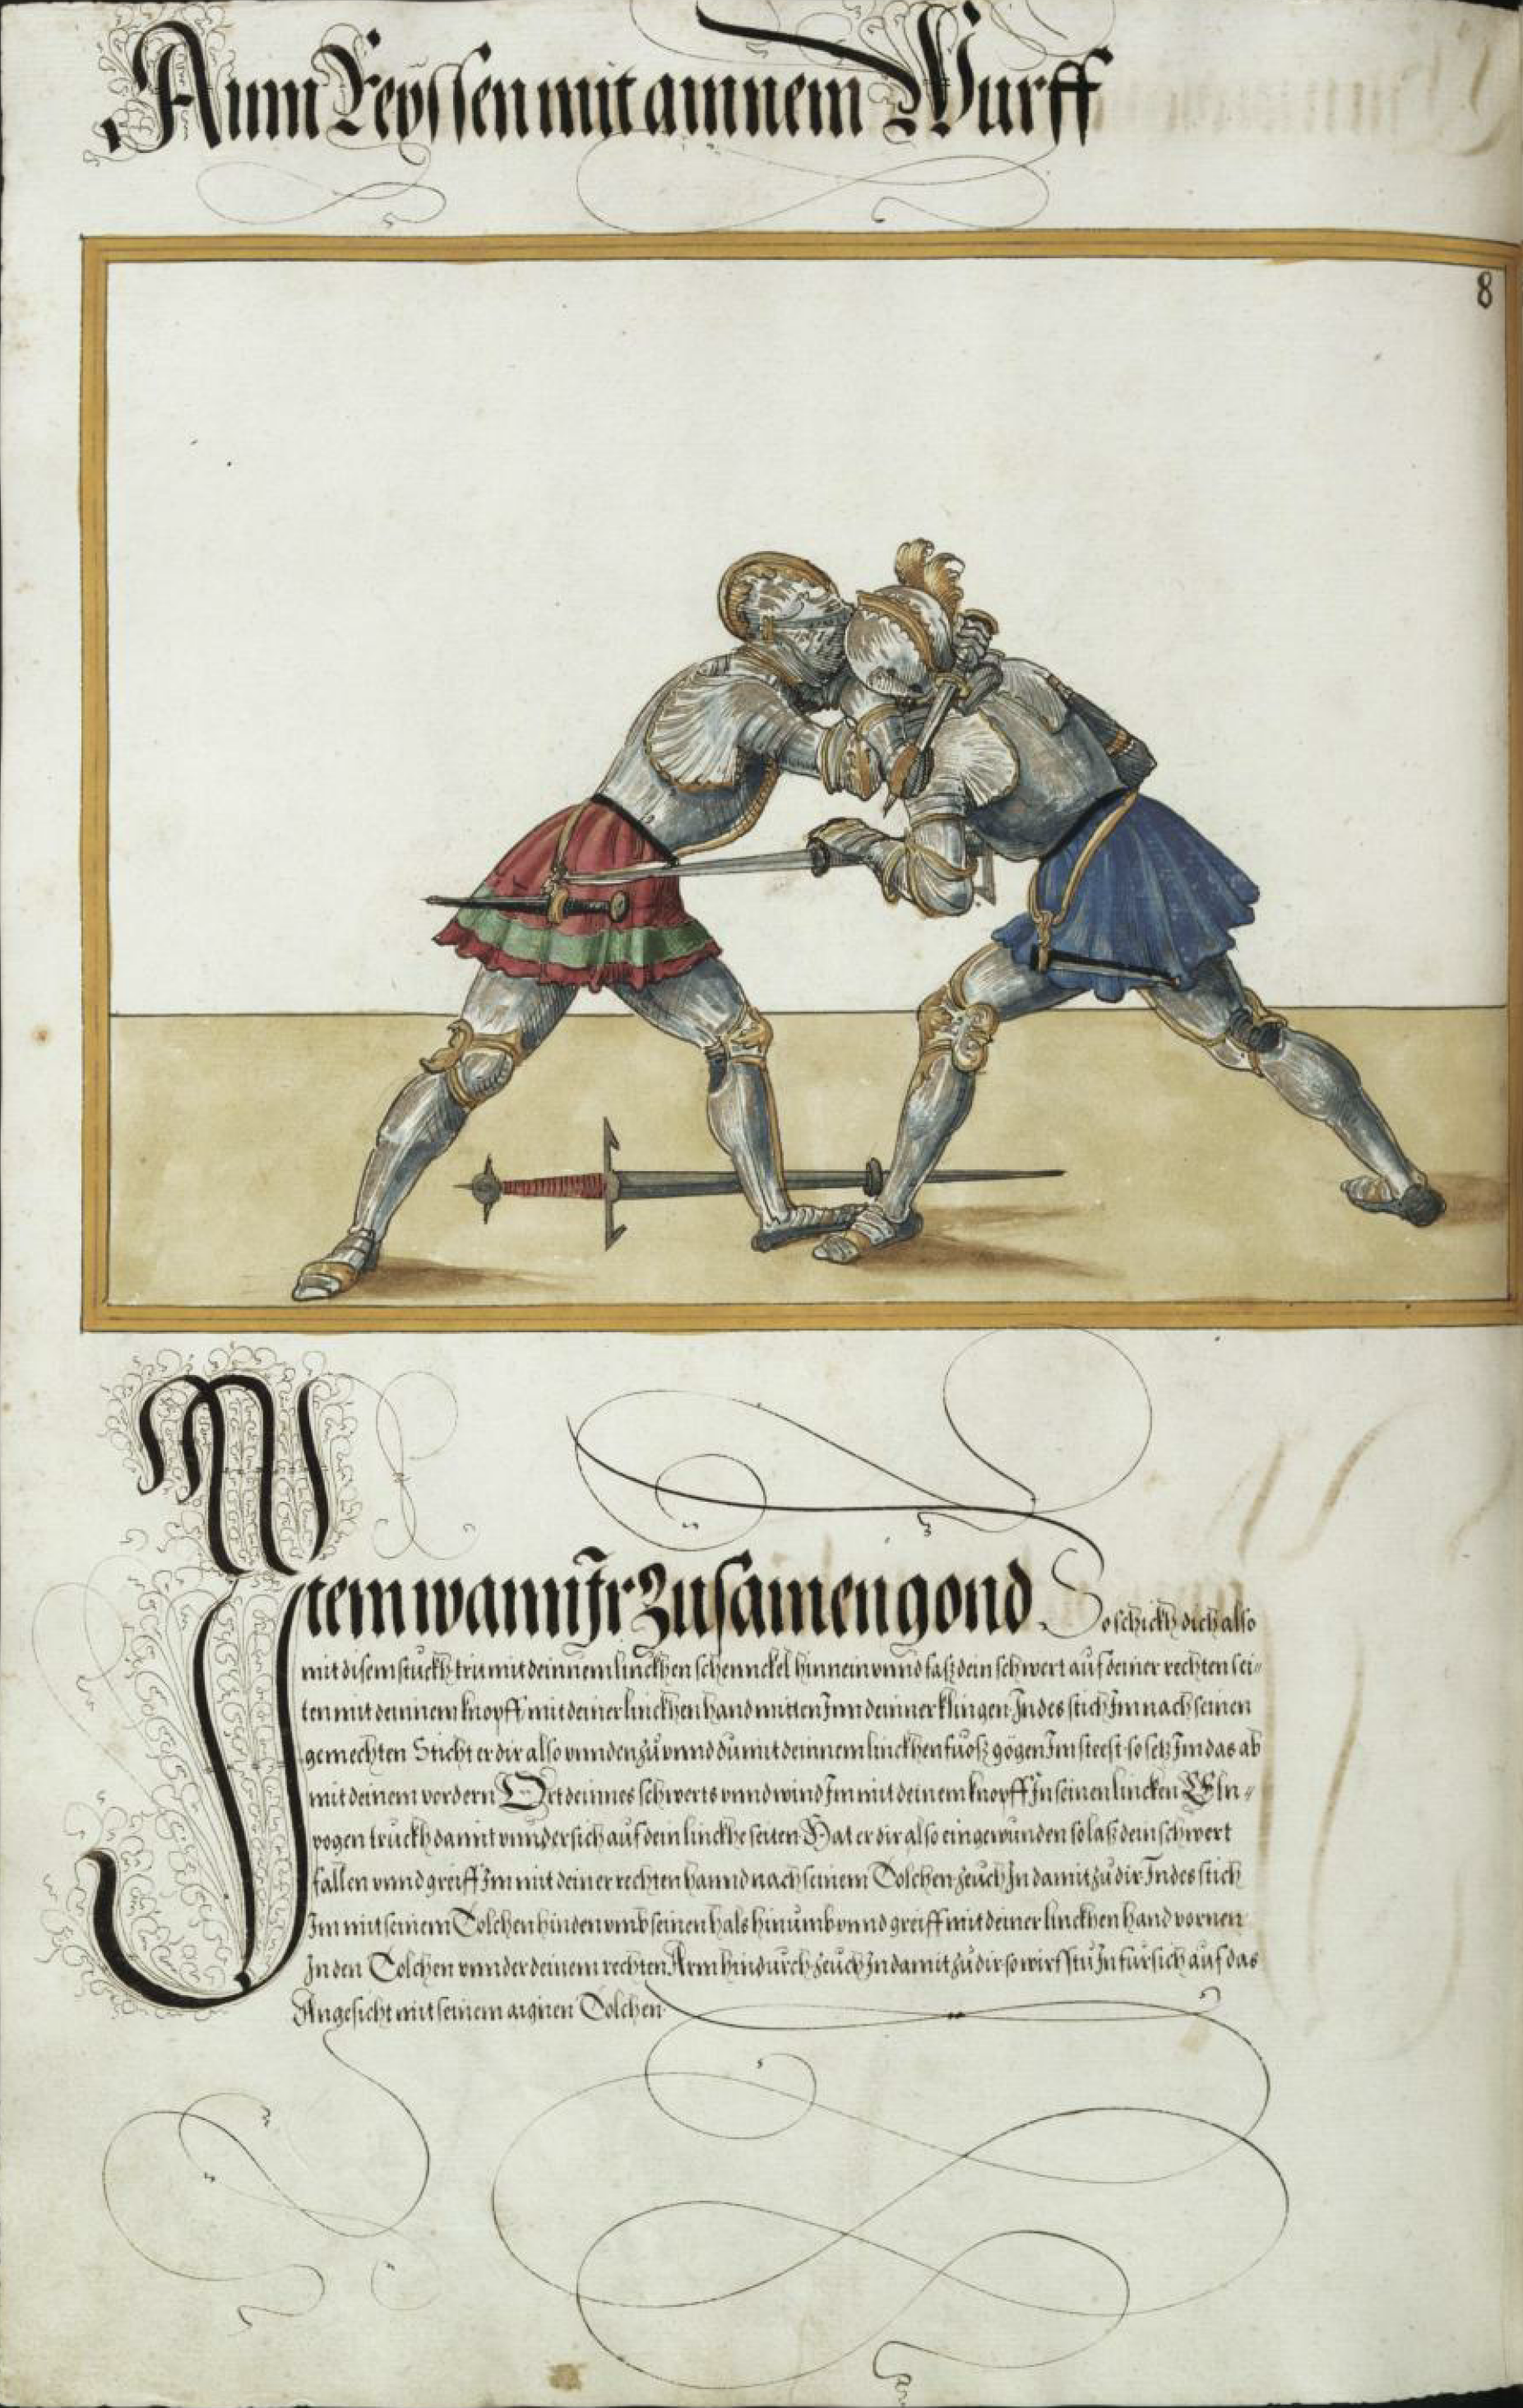 Ainn Reyssen mit ainnem Wurff
8
Item wann Jr zusamen gond So schickh dich also
mit disem stuckh trit mit deinnem linckhen schennckel hinnein vnnd fass dein schwert auf deiner rechten sei=
ten mit deinnem knopff mit deiner linckhen hand mitten Jnn deinner klingen Jndes stich Jm nach seinen
gemechten Sticht er dir also vnnden zu vnnd du mit deinnem linckhen fuoss gögen Jm steest so setz Jm das ab
mit deinem vordern Ort deinnes schwerts vnnd wind Jm mit deinem knopff Jn seinen lincken Eln=
pogen truckh damit vnndersich auf dein linckhe seiten Hat er dir also eingewunden so lass dein schwert
fallen vnnd greiff Jm mit deiner rechten hannd nach seinem Dolchen zeuch Jn damit zu dir Jndes stich
Jm mit seinem Dolchen hinden vmb seinen hals hinumb vnnd greiff mit deiner linckhen hand vornen
Jn den Dolchen vnnder deinem rechten Arm hindurch zeuch Jn damit zu dir so wirfstu Jn fürsich auf das
Angesicht mit seinem aignen Dolchen